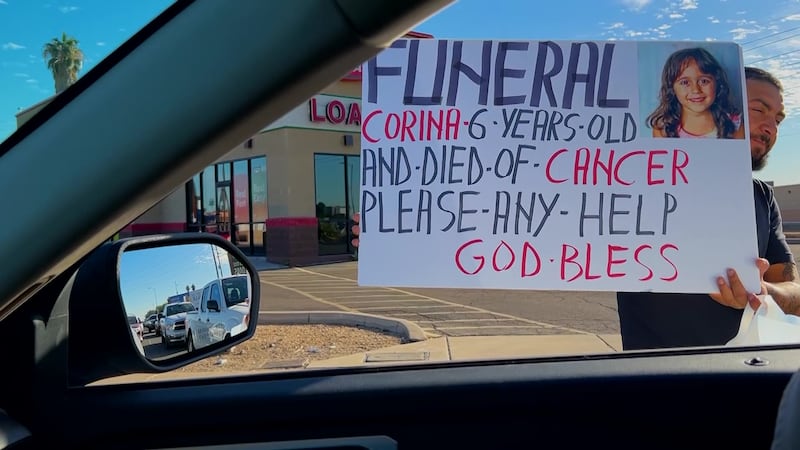 FUNERAL
CORINA-6-YEARS-OLD
AND-DIED-OF-CANCER
PLEASE-ANY-HELP
GOD-BLESS
LOA